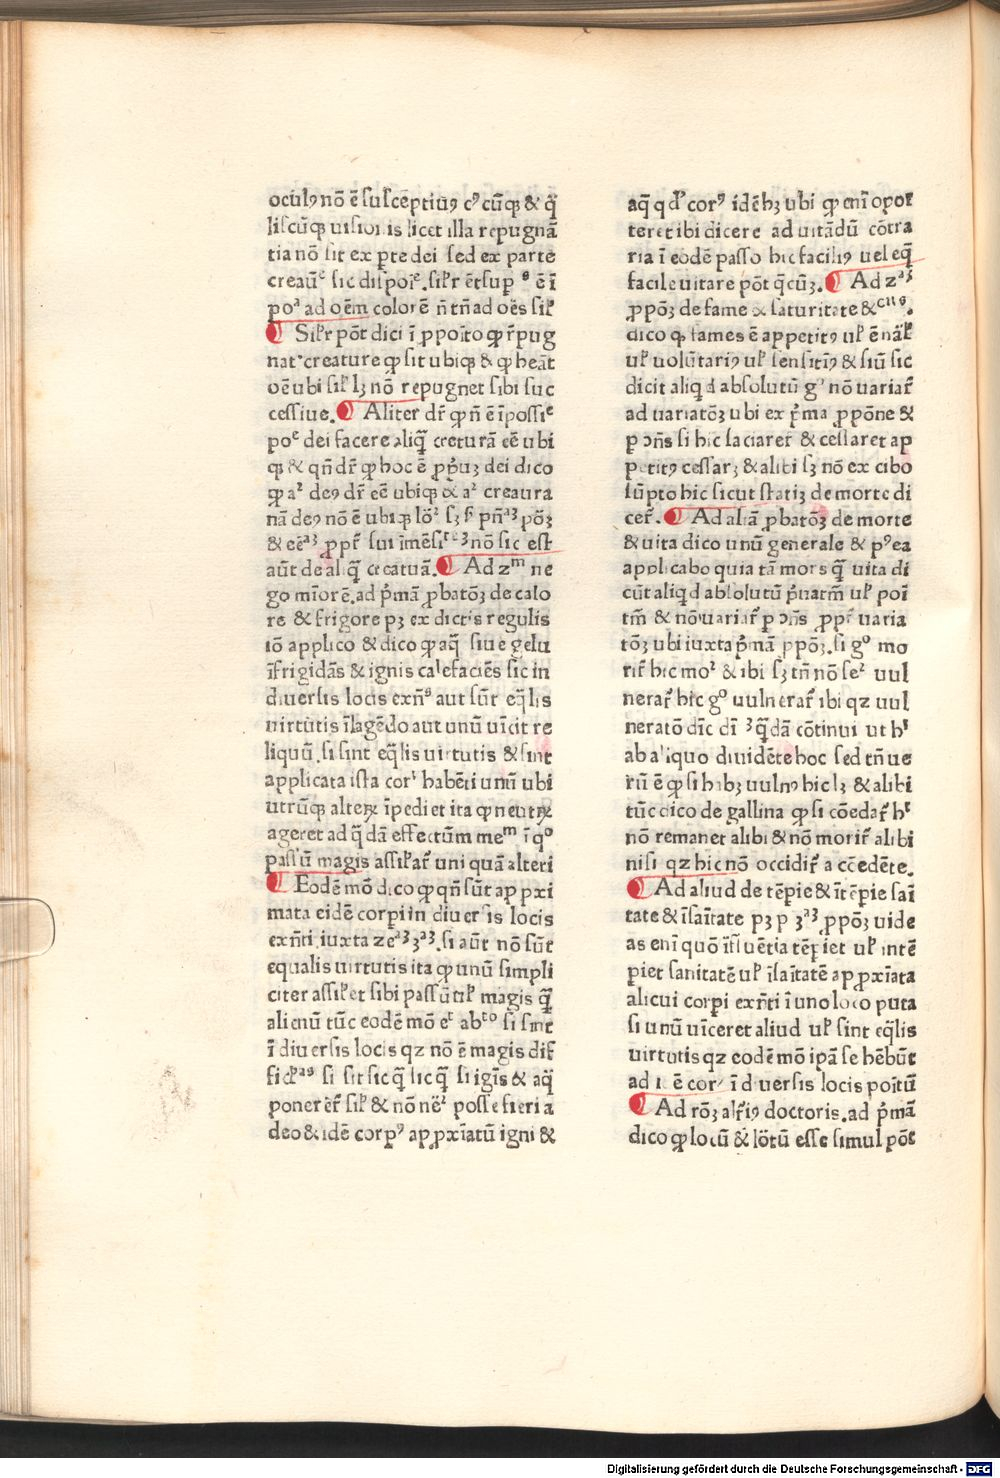 oculꝰ nō ē susceptiuꝰ cꝰ cūqꝫ & q̄
liscūqꝫ uisionis licet illa repugnā
tia nō sit ex parte dei sed ex parte
creaūᵉ sic dispoīᵉ. sil'r ēt sup ē ī
poᵃ ad oēm colorē ñ tñ ad oēs sil'
Sil'r pōt dici ī ꝓpoīto ꝙ r̄pug
nat creature ꝙ sit ubiqꝫ & ꝙ heāt
oē ubi sil' lꝫ nō repugnet sibi suc
cessiue. Aliter dr̄ ꝙ ñ ē īpossiᵉ
poᵉ dei facere aliq̄ creturā eē ubi
qꝫ & qñ dr̄ ꝙ hoc ē ꝓp̄uꝫ dei dico
ꝙ aꝉ deꝰ dr̄ eē ubiqꝫ & aꝉ creaura
nā deꝰ nō ē ubiqꝫ
& eēᵃꝫ ꝓpr̄ sui īmēsi nō sic est
aūt de aliq̄ creatuā. Ad zᵐ ne
go mīorē. ad p̄mā ꝓbatōꝫ de calo
re & frigore pꝫ ex dictis regulis
iō applico & dico ꝙ aq̄ siue gelu
īfrigidās & ignis calefaciēs sic in
diuersis locis exñˢ aut sūt eq̄lis
uirtutis īlagēdo aut unū uīcit re
liquū. si sint eq̄lis uirtutis & sint
applicata ista corꝰ habēti unū ubi
utrūqꝫ alteꝝ īpediet ita ꝙ neutꝝ
ageret ad q̄dā effectum meᵐ ī qᵒ
passū magis assil'ar̄ uni quā alteri
Eodē mō dico ꝙ qñ sūt appxi
mata eidē corpi in diuersis locis
exñti iuxta zeᵃꝫ ꝫᵃꝫ. si aūt nō sūt
equalis uirtutis ita ꝙ unū simpli
citer assil'et sibi passū til' magis q̄
alienū tūc eodē mō eᵗ abᵗᵒ si sint
ī diuersis locis qz nō ē magis dif
ficlᵃˢ si sit sic q̄ sic q̄ si igīs & aq̄
ponerēr̄ sil' & nō nēꝰ posse fieri a
deo & idē corpꝰ appxīatū igni &
aq̄ q dᶜ corꝰ idē hꝫ ubi ꝙ enī opor
teret ibi dicere ad uitādū cōtra
ria ī eodē passo hic faciliꝰ uel eq̄
facile uitare pōt q̄cūꝫ. Ad zᵃꝫ
ꝓpōꝫ de fame & saturitate &ᶜᵘˢ.
dico ꝙ fames ē appetitꝰ ul' ē nāl'
ul' uolūtariꝰ ul' sensitīꝰ & siū sic
dicit aliqd absolutū gᵒ nō uariar̄
ad uariatōꝫ ubi ex p̄ma ꝓpōne &
p ↄñs si hic saciarer̄ & cessaret ap
petitꝰ cessarꝫ & alibi sꝫ nō ex cibo
sūpto hic sicut statiꝫ de morte di
cer̄. Ad aliā ꝓbatōꝫ de morte
& uita dico unū generale & pꝰea
applicabo quia tā mors q̄ uita di
cūt aliqd absolutū p̄uatm̄ ul' poī
tm̄ & nō uariar̄ p ↄñs ꝓpr̄ uaria
tōꝫ ubi iuxta p̄mā ꝓpōꝫ. si gᵒ mo
rir̄ hic moꝉ & ibi sꝫ tñ nō seꝉ uul
nerar̄ hic gᵒ uulnerar̄ ibi qz uul
neratō dīc dī ꝫq̄dā cōtinui ut hᵗ
ab aliquo diuidēte hoc sed tñ ue
rū ē ꝙ si habꝫ uulnꝰ hic lꝫ & alibi
tūc dico de gallina ꝙ si cōedar̄ hᵗ
nō remanet alibi & nō morir̄ alibi
nisi qz hic nō occidir̄ a cōedēte.
Ad aliud de tēpie & ītēpie saī
tate & īsaītate pꝫ p ꝫᵃꝫ ꝓpōꝫ uide
as enī quō īfluētia tēpiet ul' intē
piet sanitatē ul' īsaītatē appxīata
alicui corpi exñti ī uno loco puta
si unū uīceret aliud ul' sint eq̄lis
uirtutis qz eodē mō ipā se hēbūt
ad ē corꝰ ī diuersis locis poītū
Ad rōꝫ alr̄iꝰ doctoris. ad p̄mā
dico ꝙ locū & lōtū esse simul pōt
Digitalisierung gefördert durch die Deutsche Forschungsgemeinschaft - DFG